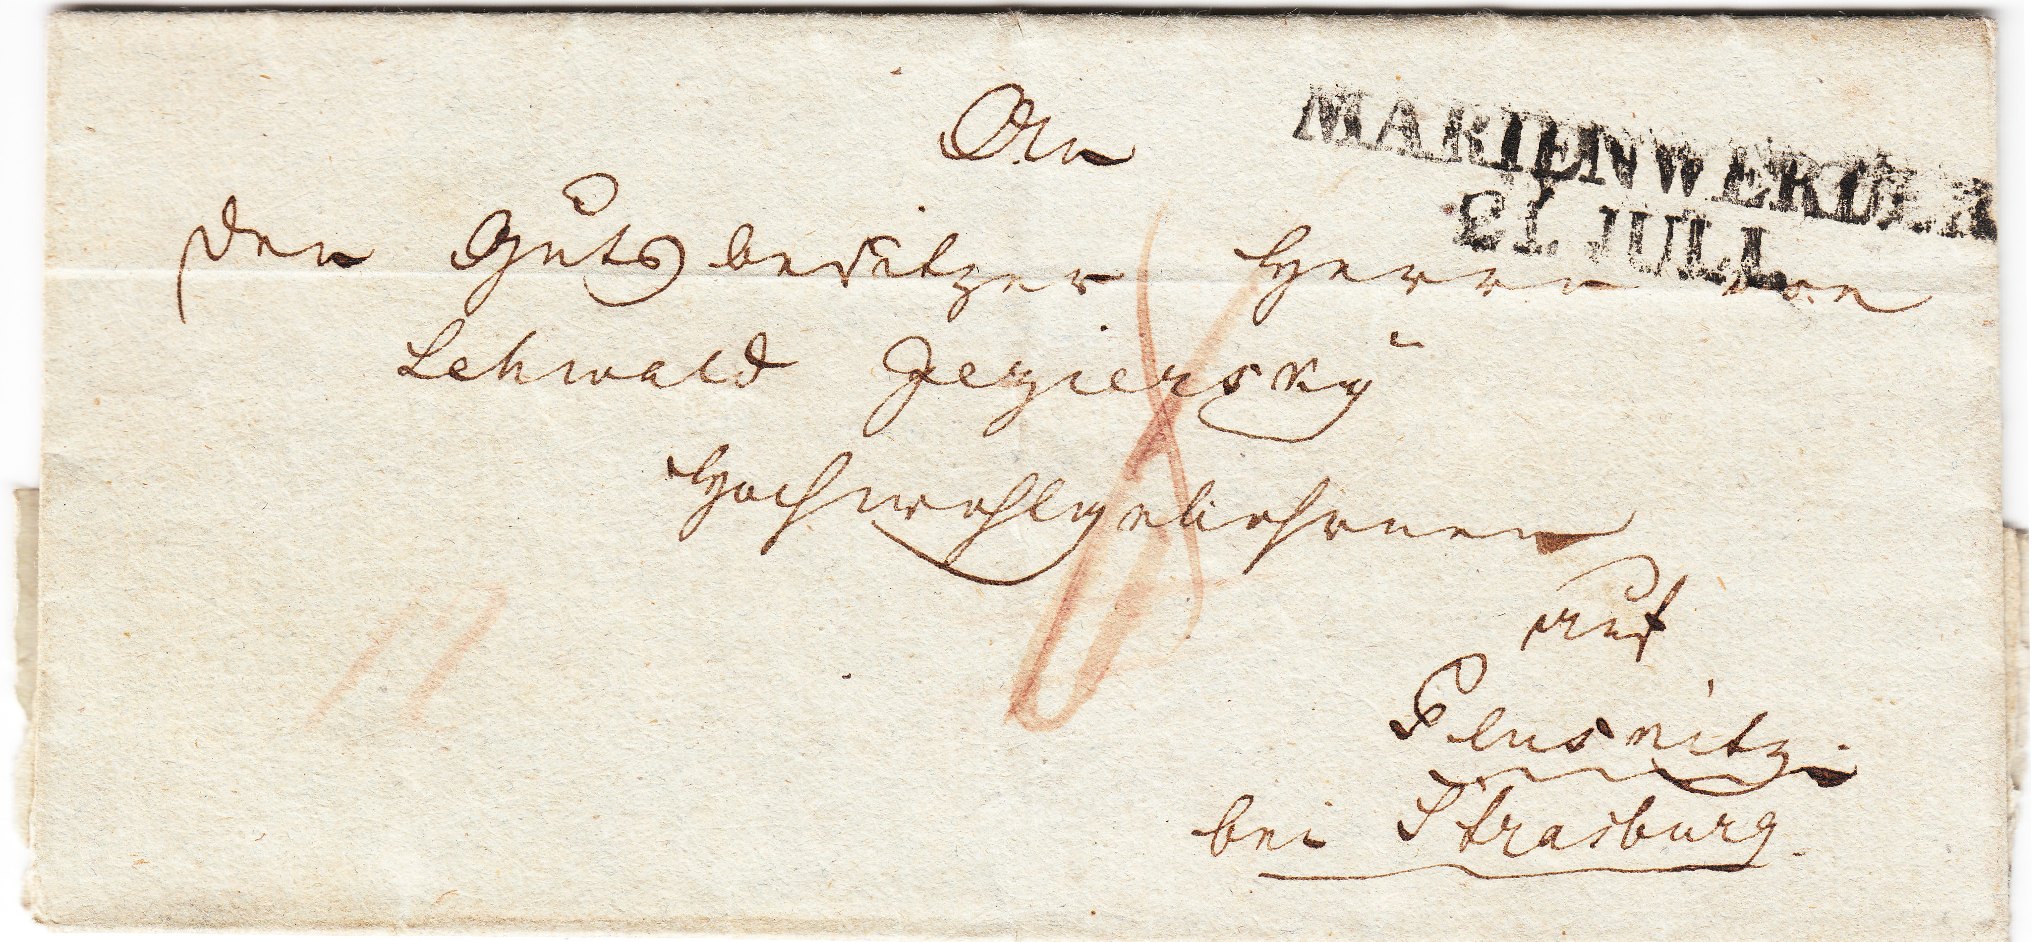 An
MARIENWERDER
21. JULI.
den Gutsbesitzer Herrn von
Lehwald Jezierský
Hochwohlgebohrnen
auf
bei Strasburg.